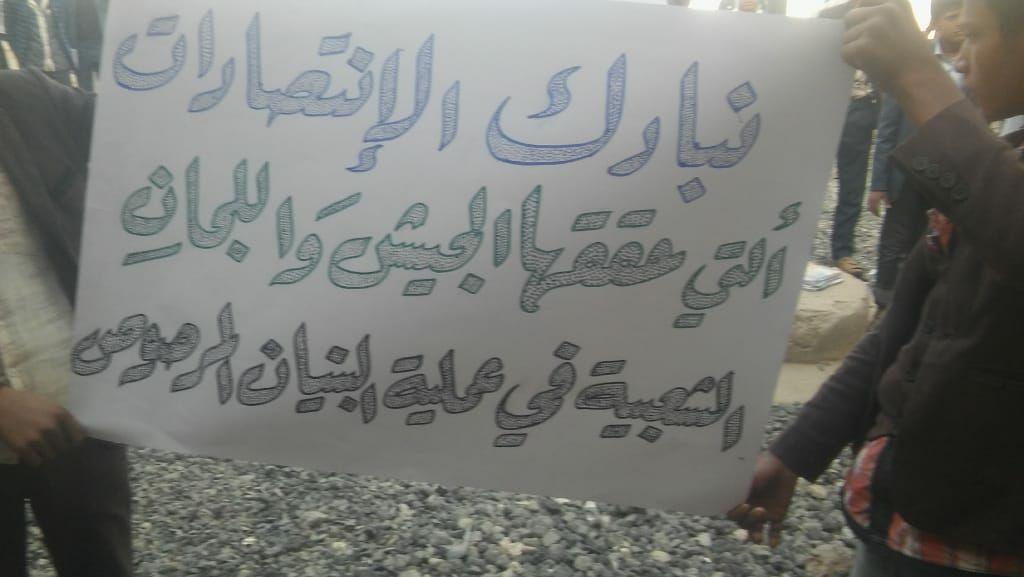 نبارك الإنتصارات
ألتي حققها الجيش وَاللجانِ
الشعبية في عملية البنيان المرصوص